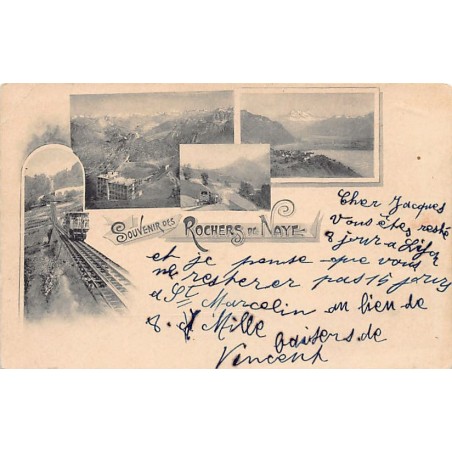 SOUVENIR DES ROCHERS DE NAYE.
Cher Jacques
Vous êtes resté
8 jour a
et je pense que vous
ne resterer pas 15 jours
a St Marcelin au lien de
8. Mille baisers de
Vincent